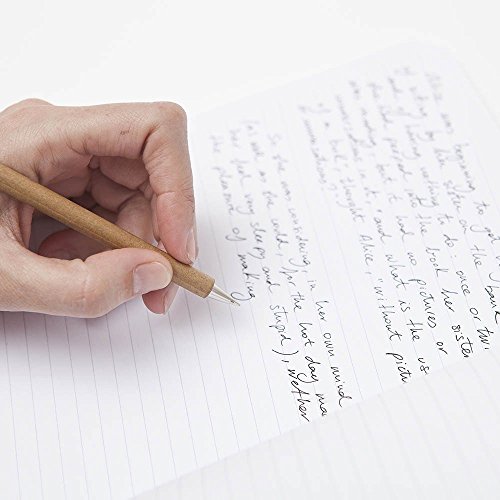 Alice was beginning to
of sitting by her sister on the bank
and of having nothing to do: once or twi
she had peeped into the book her sister
was reading, but it had no pictures or
conversations in it, "and what is the us
of a book, thought Alice, "without pictu
conversations?
So she was considering, in her own mind
(as well as she could, for the hot day ma
her feel very sleepy and stupid), wether
the pleasure of making